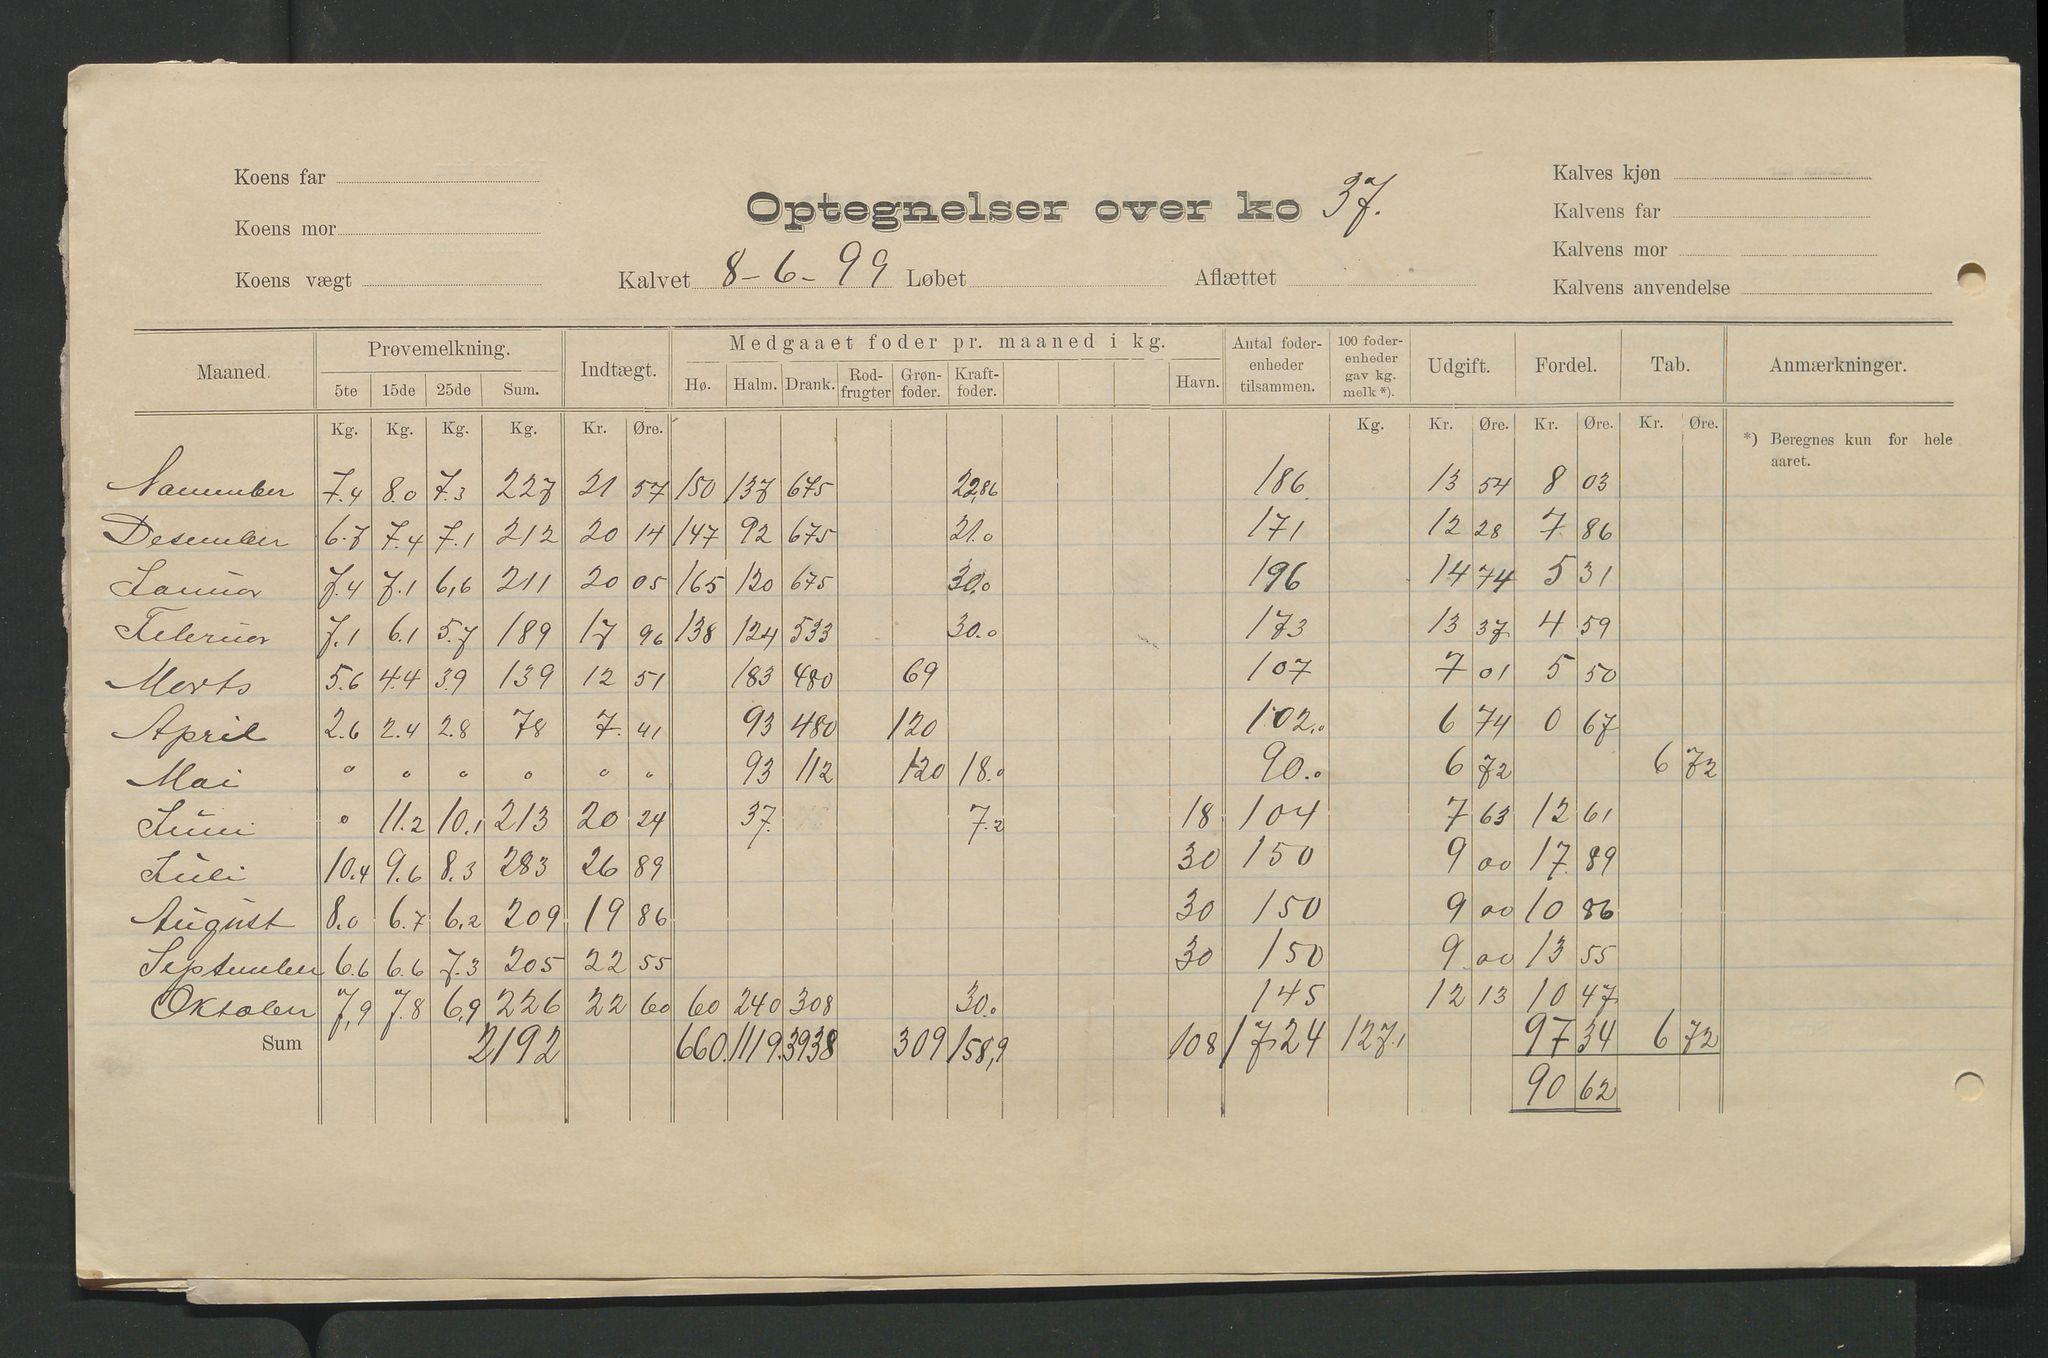 Koens far
Koens mor
Koens vægt
Optegnelser over ko 37.
Kalvet 8-6-99 Løbet Aflættet
Kalves kjøn
Kalvens far
Kalvens mor
Kalvens anvendelse
Maaned. Prøvemelkning. Indtægt. Medgaaet foder pr. maaned i kg. Antal foder-enheder tilsammen. 100 foder-enheder gav kg. melk *). Udgift. Fordel. Tab. Anmærkninger.
5te 15de 25de Sum. Hø. Halm. Drank. Rod-frugter Grøn-foder. Kraft-foder. Havn.
Kg. Kg. Kg. Kg. Kr. Øre. Kg. Kr. Øre. Kr. Øre. Kr. Øre.
*) Beregnes kun for hele aaret.
November 7.4 8.0 7.3 227 21 57 150 137 675 22,86 186 13 54 8 03
Desember 6.7 7.4 7.1 212 20 14 147 92 675 21.0 171 12 28 7 86
Januar 7.4 7.1 6,6 211 20 05 165 120 675 30.0 196 14 74 5 31
Februar 7.1 6.1 5.7 189 17 96 138 124 533 30.0 173 13 37 4 59
Marts 5.6 4.4 3.9 139 12 51 183 480 69 107 7 01 5 50
April 2.6 2.4 2.8 78 7. 41 93 480 120 102.0 6 74 0 67
Mai " " " " " " 93 112 120 18.0 90.0 6 72 6 72
Juni " 11.2 10.1 213 20 24 37. 7.2 18 104 7 63 12 61
Juli 10.4 9.6 8.3 283 26 89 30 150 9 00 17 89
August 8.0 6.7 6.2 209 19 86 30 150 9 00 10 86
September 6.6 6.6 7.3 205 22 55 30 150 9 00 13 55
Oktober 7,9 7.8 6,9 226 22 60 60 240 308 30.0 145 12 13 10 47
Sum 2192 660. 1119. 3938 309 158,9 108 1724 127.1 97 34 6 72
90 62